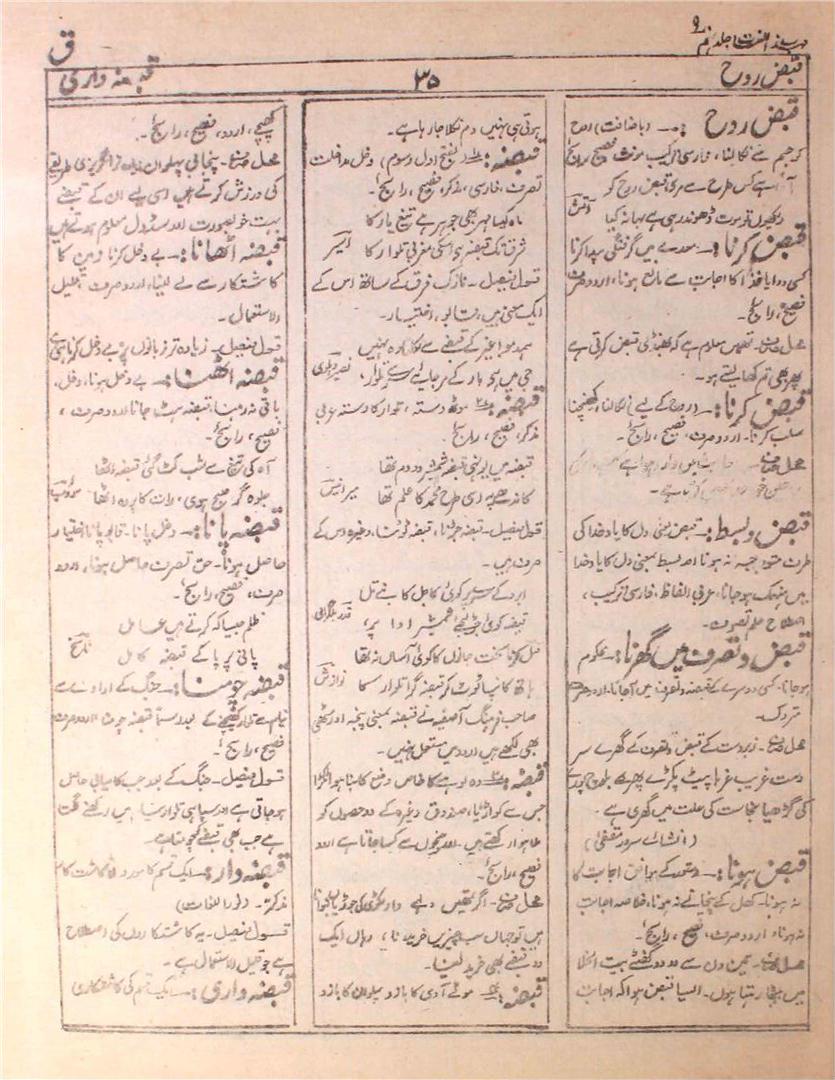 مہذب اللغات جلد نہم
ق
قبض روح
۳۵
قبضہ داری
قبض روح :۔ (باضافت) روح
کو جسم سے نکالنا، فارسی ترکیب مونث فصیح رائج
آتا ہے کس طرح سے مری قبض روح کو
دیکھوں تو موت ڈھونڈ رہی ہے بہانہ کیا آتش
قبض کرنا :۔ معدے میں گرفتگی پیدا کرنا
کسی دوا یا غذا کا اجابت سے مانع ہونا، اردو صرف
فصیح، رائج۔
محل صرف۔ تمھیں معلوم ہے کہ بھنڈی قبض کرتی ہے
پھر بھی تم کھا لیتے ہو۔
قبض کرنا :۔ (روح کے لیے) نکالنا، کھینچنا
سلب کرنا۔ اردو صرف، فصیح، رائج۔
محل صرف۔
قبض و بسط :۔ قبض بمعنی دل کا یاد خدا کی
طرف متوجہ نہ ہونا اور بسط بمعنی دل کا یاد خدا
میں منہمک ہو جانا، عربی الفاظ، فارسی ترکیب،
اصطلاح علم تصوف۔
قبض و تصرف میں گھرنا :۔ محکوم
ہو جانا۔ کسی دوسرے کے قبضہ و تصرف میں آجانا، اردو صرف
متروک۔
محل صرف۔ زبردست کے قبض و تصرف کے گھرے سر
دست غریب غربا پیٹ پکڑے پھرے
کی گڑھیا نجاست کی علت میں گھری ہے۔
(انشائے سرور مقفیٰ)
قبض ہونا :۔ دستور کے موافق اجابت کا
نہ ہونا۔ کھل کے پیچانے نہ ہونا، خلاصہ اجابت
نہ ہونا، اردو صرف، فصیح، رائج۔
محل صرف۔ تین دن سے دو دو گھنٹے بیت الخلا
میں بیٹھا رہتا ہوں۔ ایسا قبض ہوا کہ اجابت
ہوتی ہی نہیں دم نکلا جا رہا ہے۔
قبضہ :۔ (بفتح اول و سوم) دخل مداخلت
تصرف، فارسی، مذکر، فصیح، رائج۔
ماہ کیا مہر بھی جوہر ہے تیغ یار کا
شرق تک قبضہ ہے اسکی مغربی تلوار کا اسیر
قول فیصل۔ نازک فرق کے ساتھ اس کے
ایک معنی ہیں، قابو، اختیار۔
جی میں ہے یار کے مر جائیے
قبضہ :۔ موٹھ دستہ، تلوار کا دستہ عربی
مذکر، فصیح، رائج۔
قبضہ میں یونہی قبضہ شمشیر دو دم تھا
کاندھے پہ اسی طرح محمدؐ کا علم تھا میر انیس
قول فیصل۔ قبضہ چومنا، قبضہ ٹوٹنا، وغیرہ اس کے
صرف ہیں۔
ہاتھ کانپا ٹوٹ کر قبضہ گرا تلوار کا نوازش
صاحب فرہنگ آصفیہ نے قبضہ بمعنی پنجہ اور مٹھی
بھی لکھے ہیں اردو میں مستعمل نہیں۔
قبضہ :۔ وہ لوہے کا خاص وضع کا بنا ہوا ٹکڑا
جس سے کواڑ یا صندوق وغیرہ کے دو حصوں کو
ملا ہوا رکھتے ہیں۔ اور پیچوں سے کسا جاتا ہے اردو
فصیح، رائج۔
محل صرف۔ اگر تمھیں
ہیں تو جہاں سب چیزیں خریدنا، وہاں ایک
دو قبضے بھی خرید لینا۔
قبضہ :۔ موٹے آدمی کا بازو پہلوان کا بازو
کھیچے، اردو، فصیح، رائج۔
محل صرف۔ پنجابی پہلوان زیادہ تر انگریزی طریقے
کی ورزش کرتے ہیں اسی لیے ان کے قبضے
بہت خوبصورت اور سڈول معلوم ہوتے ہیں
قبضہ اٹھانا :۔ بے دخل کرنا زمین کا
کاشتکار سے لے لینا، اردو صرف قلیل
الاستعمال۔
قول فیصل۔ زیادہ تر زبانوں پر بے دخل کرنا ہی ہے
قبضہ اٹھنا :۔ بے دخل ہونا، دخل
باقی نہ رہنا، قبضہ ہٹ جانا اردو صرف،
فصیح، رائج۔
آہ کی تیغ سے شب کٹ گئی قبضہ اٹھا
جلوہ گر صبح ہوئی، رات کا پردہ اٹھا
قبضہ پانا :۔ دخل پانا۔ قابو پانا اختیار
حاصل ہونا۔ حق تصرف حاصل ہونا، اردو
صرف، فصیح، رائج۔
ظلم بیجا کرتے ہیں عامل
پائی پر پا کے قبضہ کامل
قبضہ چومنا :۔ جنگ کے ارادے سے
نیام سے تلوار کھینچنے کے بعد رسماً قبضہ چومنا، اردو صرف
فصیح، رائج۔
قول فیصل۔ جنگ کے بعد جب کامیابی حاصل
ہو جاتی ہے اور سپاہی تلوار نیام میں رکھنے لگتا
ہے جب بھی قبضے کو چومتا ہے۔
قبضہ دار :۔ ایک قسم کا موروثی کاشت کار
مذکر :۔ (نور اللغات)
قول فیصل۔ یہ کاشتکاروں کی اصطلاح
ہے جو قلیل الاستعمال ہے۔
قبضہ داری :۔ ایک قسم کی کاشتکاری